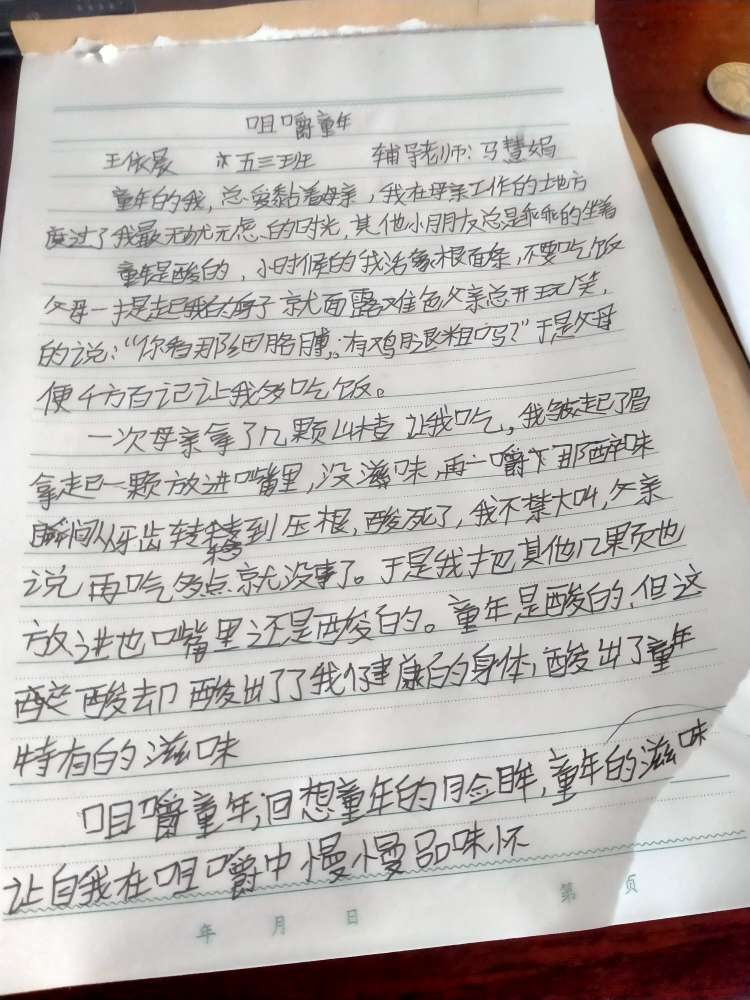 咀嚼童年
王依晨 五三班 辅导老师:马慧娟
童年的我,总爱黏着母亲,我在母亲工作的地方
度过了我最无忧无虑的时光,其他小朋友总是乖乖的坐着
童年是酸的,小时候的我活象根面条,不要吃饭
父母一提起我的脖子就面露难色父亲总开玩笑,
的说:“你看那细胳膊,有鸡腿粗吗?”于是父母
便千方百记让我多吃饭。
一次母亲拿了几颗山楂让我吃,我皱起了眉
拿起一颗放进嘴里,没滋味,再一嚼下那酸味
瞬间从牙齿转移到压根,酸死了,我不禁大叫,父亲
说再吃多点就没事了。于是我把其他几颗也
放进也嘴里还是酸的。童年是酸的,但这
酸却酸出了了我健康的身体,酸出了童年
特有的滋味
咀嚼童年,回想童年的脸眸,童年的滋味
让自我在咀嚼中慢慢品味怀
年 月 日 第 页